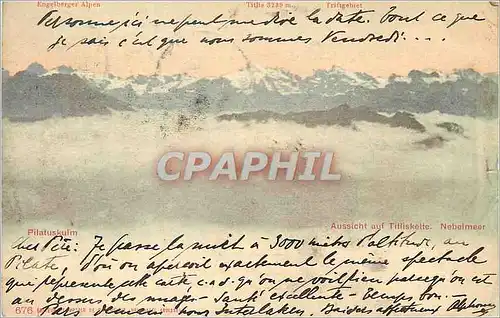 Engelberger Alpen Titlis 3239 m. Triftgebiet
Personne ici ne peut me dire la date. Tout ce que
je sais c'est que nous sommes Vendredi....
CPAPHIL
Pilatuskulm Aussicht auf Titliskette. Nebelmeer
cher Pité: Je passe la nuit à 3000 mètres d'altitude, au
Pilate, d'où on aperçoit exactement le même spectacle
que représente cette carte, c.a.d. qu'on ne voit rien parcequ'on est
au dessus des nuages - Santé excellente - temps bon.
676 demain nous Interlaken. affectueux Alphonse